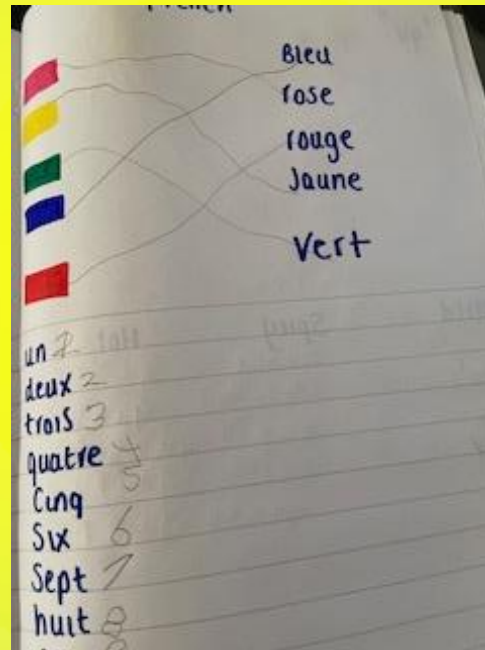 French
Bleu
rose
rouge
Jaune
Vert
un 1
deux 2
trois 3
quatre 4
Cinq 5
Six 6
Sept 7
huit 8